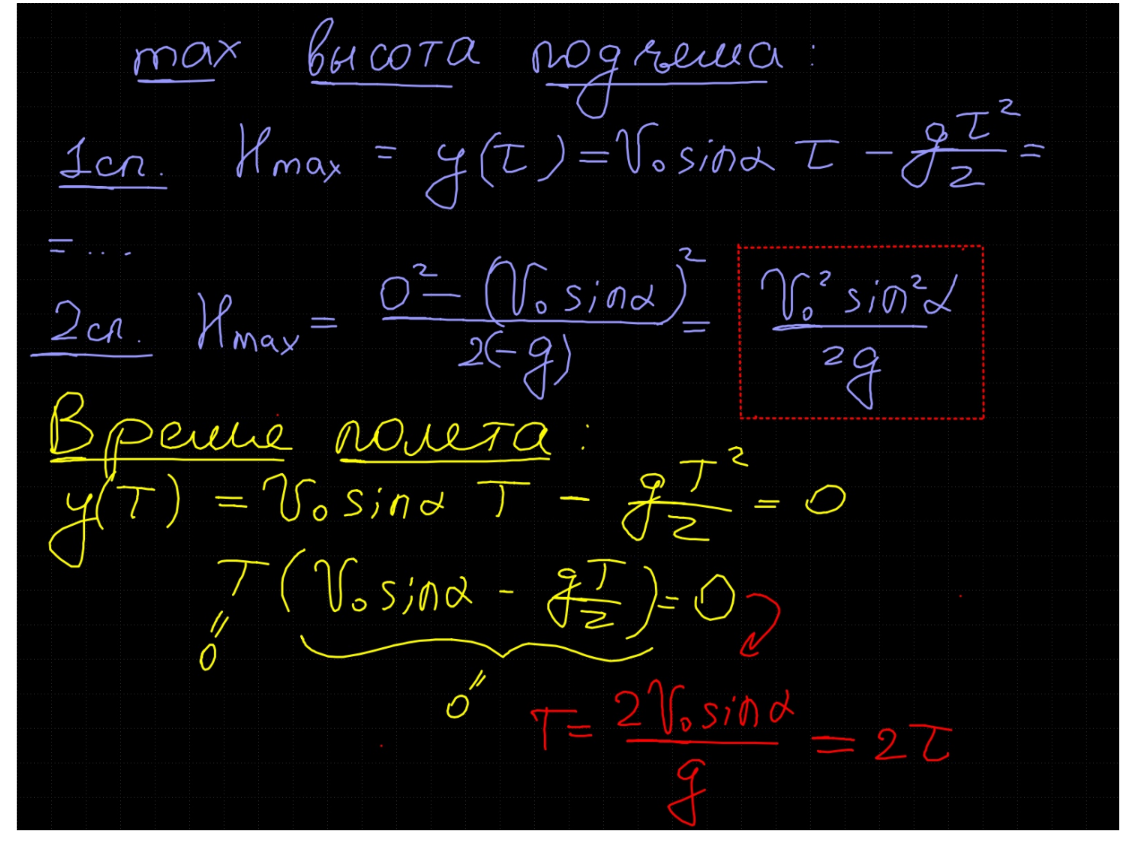 max высота подъема:
1сп. Hmax = y(τ) = V₀ sinα τ − gτ²/2 =
= ...
2сп. Hmax = (0² − (V₀ sinα)²)/(2(−g)) = V₀² sin²α/2g
Время полета:
y(T) = V₀ sinα T − gT²/2 = 0
T (V₀ sinα − gT/2) = 0
" "
0 0
T = 2V₀ sinα/g = 2τ